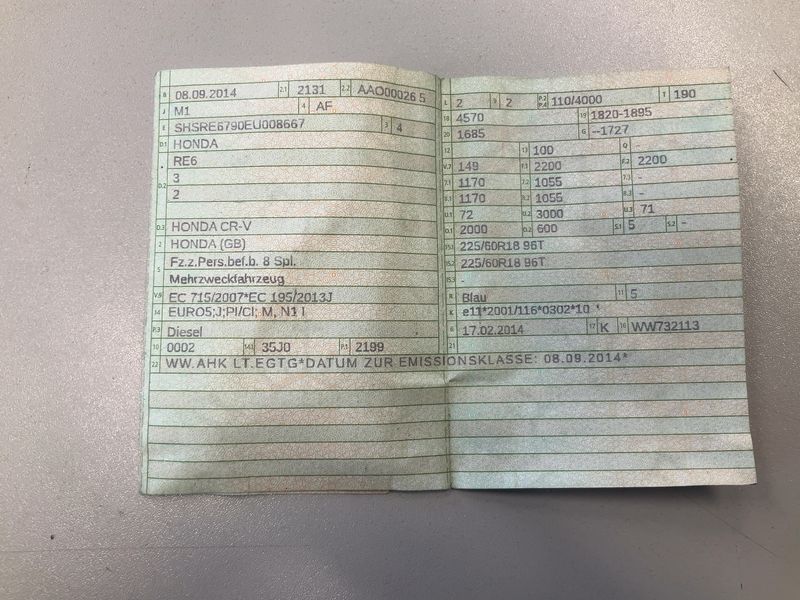 B 08.09.2014 2.1 2131 2.2 AAO00026 5
J M1 4 AF
E SHSRE6790EU008667 3 4
D.1 HONDA
RE6
D.2 3
2
D.3 HONDA CR-V
2 HONDA (GB)
5 Fz.z.Pers.bef.b. 8 Spl.
Mehrzweckfahrzeug
V.9 EC 715/2007*EC 195/2013J
14 EURO5;J;PI/CI; M, N1 I
P.3 Diesel
10 0002 14.1 35J0 P.1 2199
22 WW.AHK LT.EGTG*DATUM ZUR EMISSIONSKLASSE: 08.09.2014*
L 2 9 2 P.2 P.4 110/4000 T 190
18 4570 19 1820-1895
20 1685 G --1727
12 13 100 Q -
V.7 149 F.1 2200 F.2 2200
7.1 1170 7.2 1055 7.3 -
8.1 1170 8.2 1055 8.3 -
U.1 72 U.2 3000 U.3 71
O.1 2000 O.2 600 S.1 5 S.2 -
15.1 225/60R18 96T
15.2 225/60R18 96T
15.3 -
R Blau 11 5
K e11*2001/116*0302*10
6 17.02.2014 17 K 16 WW732113
21